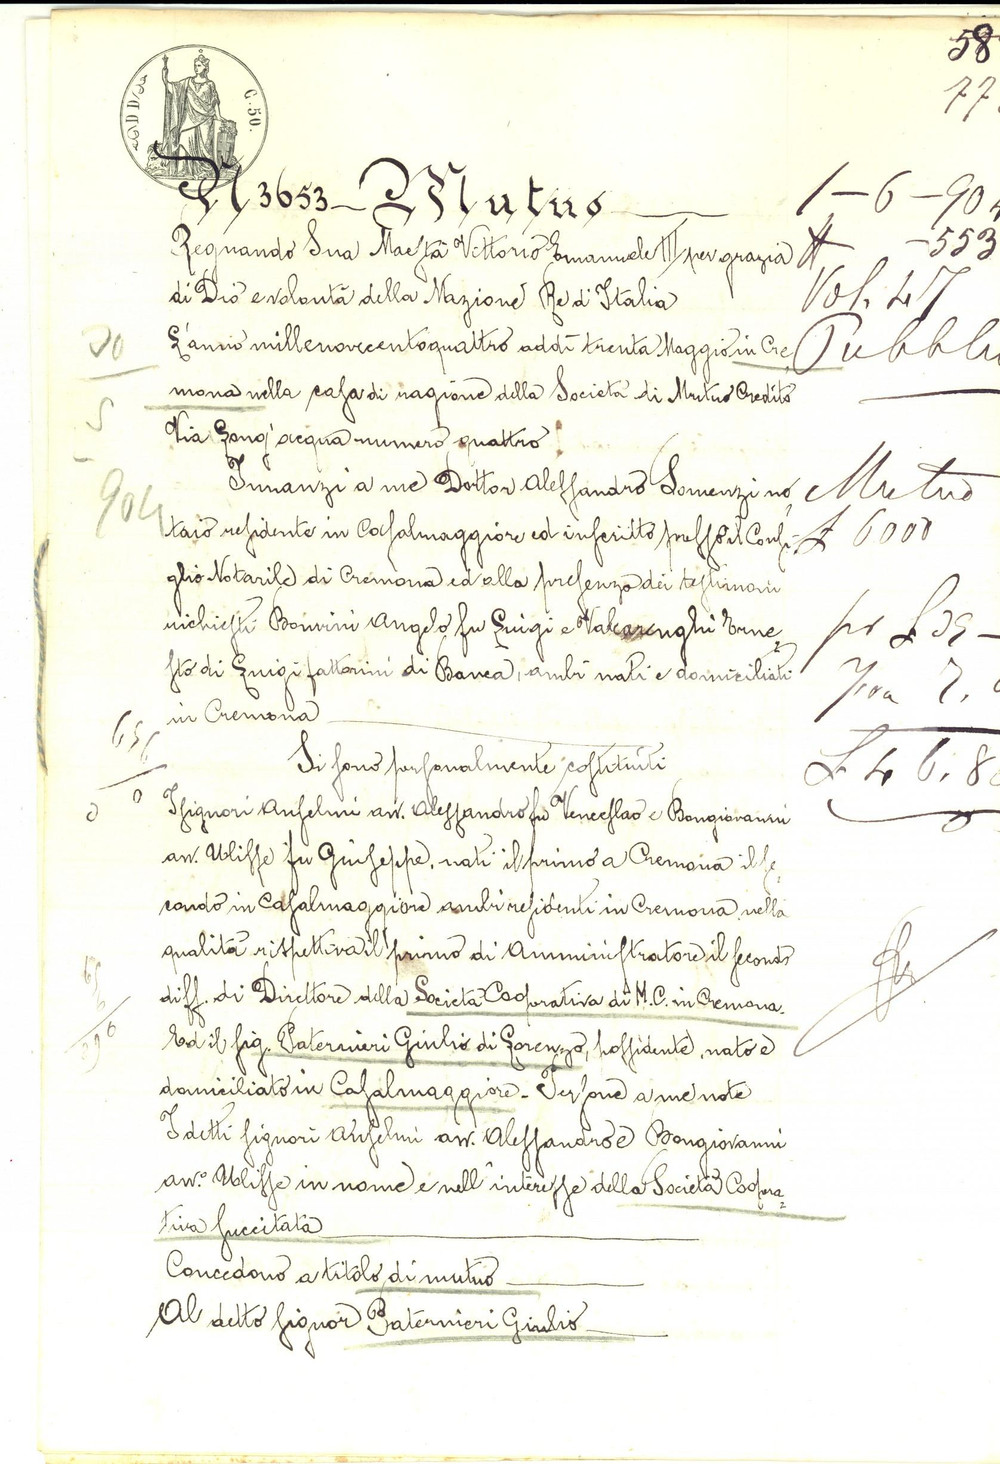 C. 50.
N 3653 – Mutuo
Regnando Sua Maestà Vittorio Emanuele III per grazia
di Dio e volontà della Nazione Re d'Italia
L'anno millenovecentoquattro addì trenta Maggio in Cre
mona nella casa di ragione della Società di Mutuo Credito
Via Long'acqua numero quattro
Innanzi a me Dottor Alessandro Somenzi no
taio residente in Casalmaggiore ed inscritto presso il Consi-
glio Notarile di Cremona ed alla presenza dei testimoni
richiesti Bonvini Angelo fu Luigi e Valcarenghi Erne
sto di Luigi fattorini di Banca, ambi nati e domiciliati
in Cremona
Si sono personalmente costituiti
I signori Anselmi avv. Alessandro fu Venceslao e Bongiovanni
avv. Ulisse fu Giuseppe, nati il primo a Cremona il se,
condo in Casalmaggiore ambi residenti in Cremona, nella
qualità rispettiva il primo di Amministratore il secondo
diff. di Direttore della Società Cooperativa di M. C. in Cremona.
Ed il sig. Paternieri Giulio di Lorenzo, possidente, nato e
domiciliato in Casalmaggiore – Persone a me note
I detti signori Anselmi avv. Alessandro e Bongiovanni
avv.º Ulisse in nome e nell'interesse della Società Coopera=
tiva succitata
Concedono a titolo di mutuo
Al detto signor Paternieri Giulio
58
77
1–6–904
# –553
Vol. 47
Mutuo
£ 6000
30
5
904
656